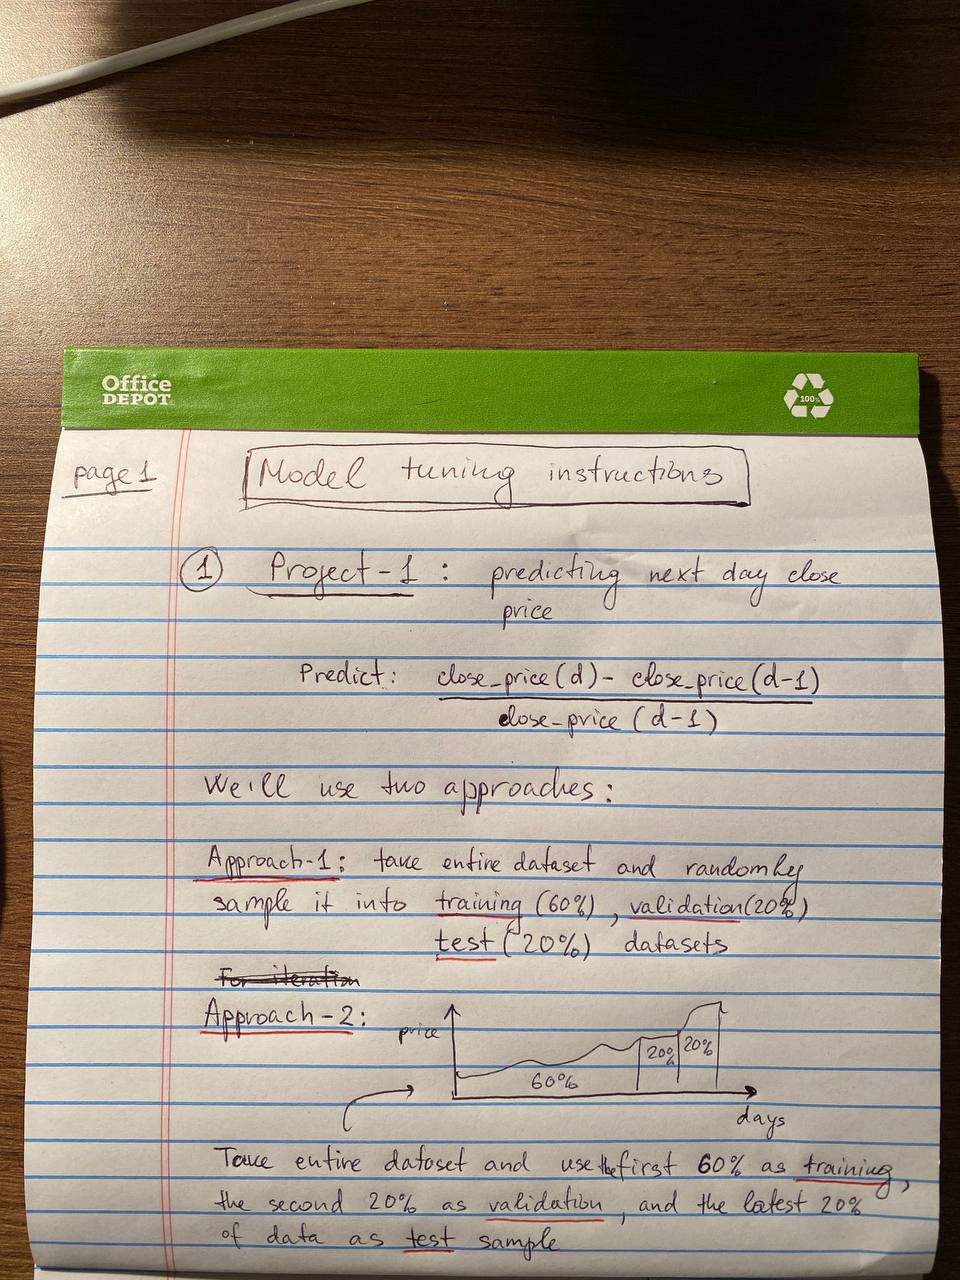 Office
DEPOT
100%
page 1
Model tuning instructions
1 Project-1 : predicting next day close
price
Predict: close_price(d) - close_price(d-1)
close_price (d-1)
We'll use two approaches:
Approach-1: take entire dataset and randomly
sample it into training (60%), validation (20%)
test (20%) datasets
For iteration
Approach-2:
price
60%
20%
20%
days
Take entire dataset and use the first 60% as training,
the second 20% as validation, and the latest 20%
of data as test sample